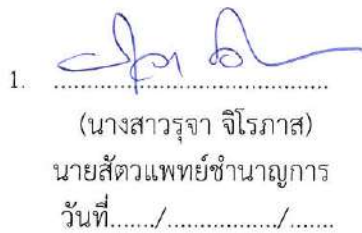 1. ........................................
(นางสาวรุจา จิโรภาส)
นายสัตวแพทย์ชำนาญการ
วันที่....../................/.......